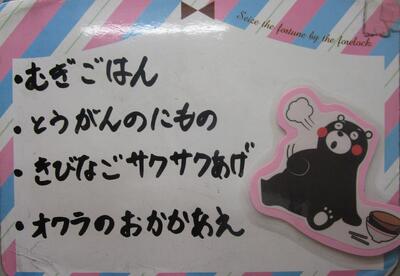 Seize the fortune by the forelock
・むぎごはん
・とうがんのにもの
・きびなごサクサクあげ
・オクラのおかかあえ